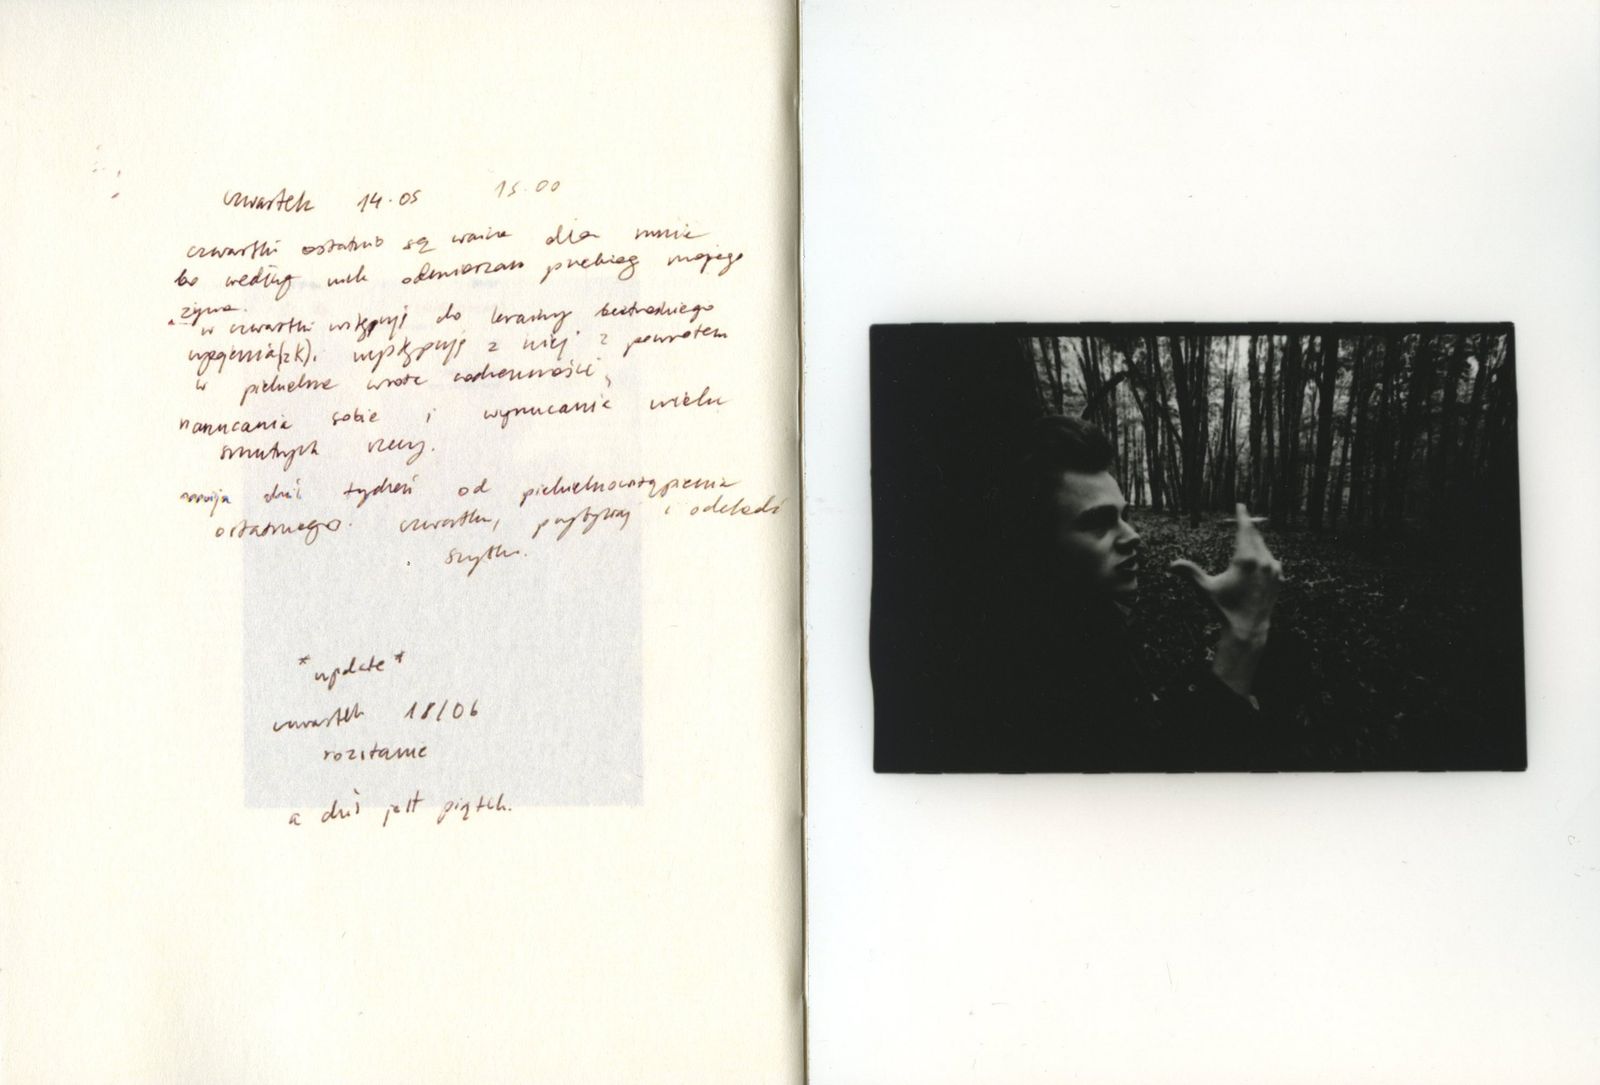 czwartek 14.05 15.00
czwartki ostatnio są ważne dla mnie
bo według nich odmierzam przebieg mojego
życia.
w czwartki wstępuję do krainy beztroskiego
i występuję z niej z powrotem
w piekielne wrota codzienności,
narzucania sobie i wyrzucania wielu
smutnych rzeczy.
mija dziś tydzień od piekielnowstąpienia
ostatniego. czwartku, przybywaj i odchodź
szybko.
*update*
czwartek 18/06
rozstanie
a dziś jest piątek.